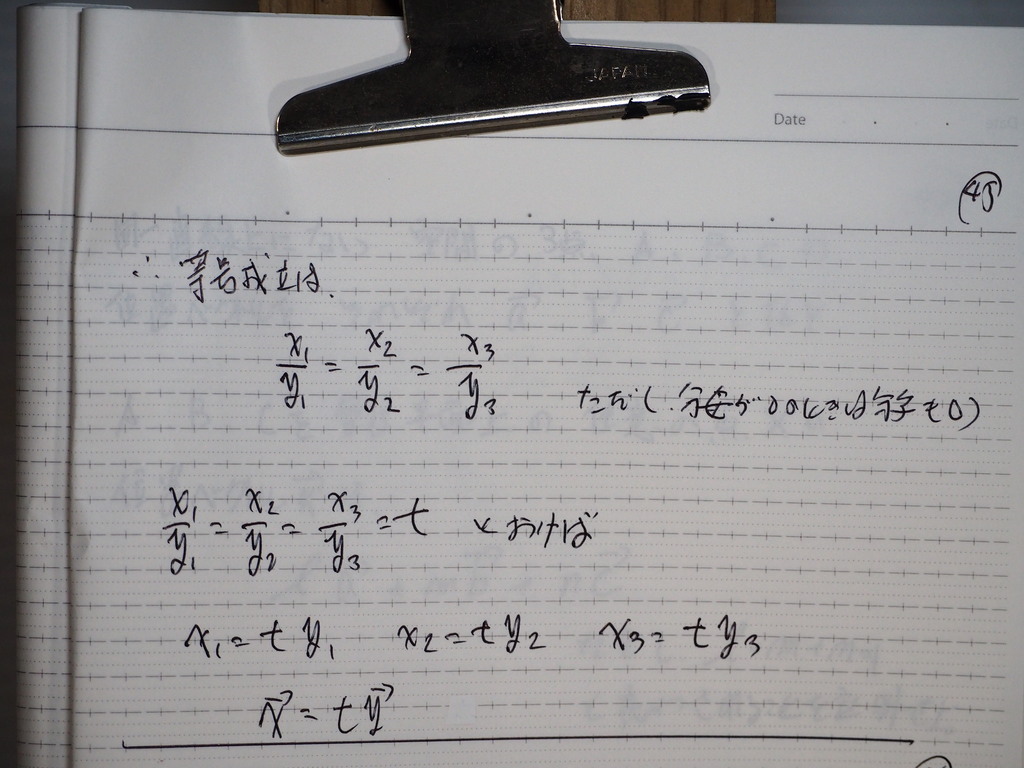 JAPAN
Date
45
∴ 等号成立は、
x₁/y₁ = x₂/y₂ = x₃/y₃
ただし、分母が0のときは分子も0)
x₁/y₁ = x₂/y₂ = x₃/y₃ = t とおけば
x₁ = t y₁ x₂ = t y₂ x₃ = t y₃
x⃗ = t y⃗